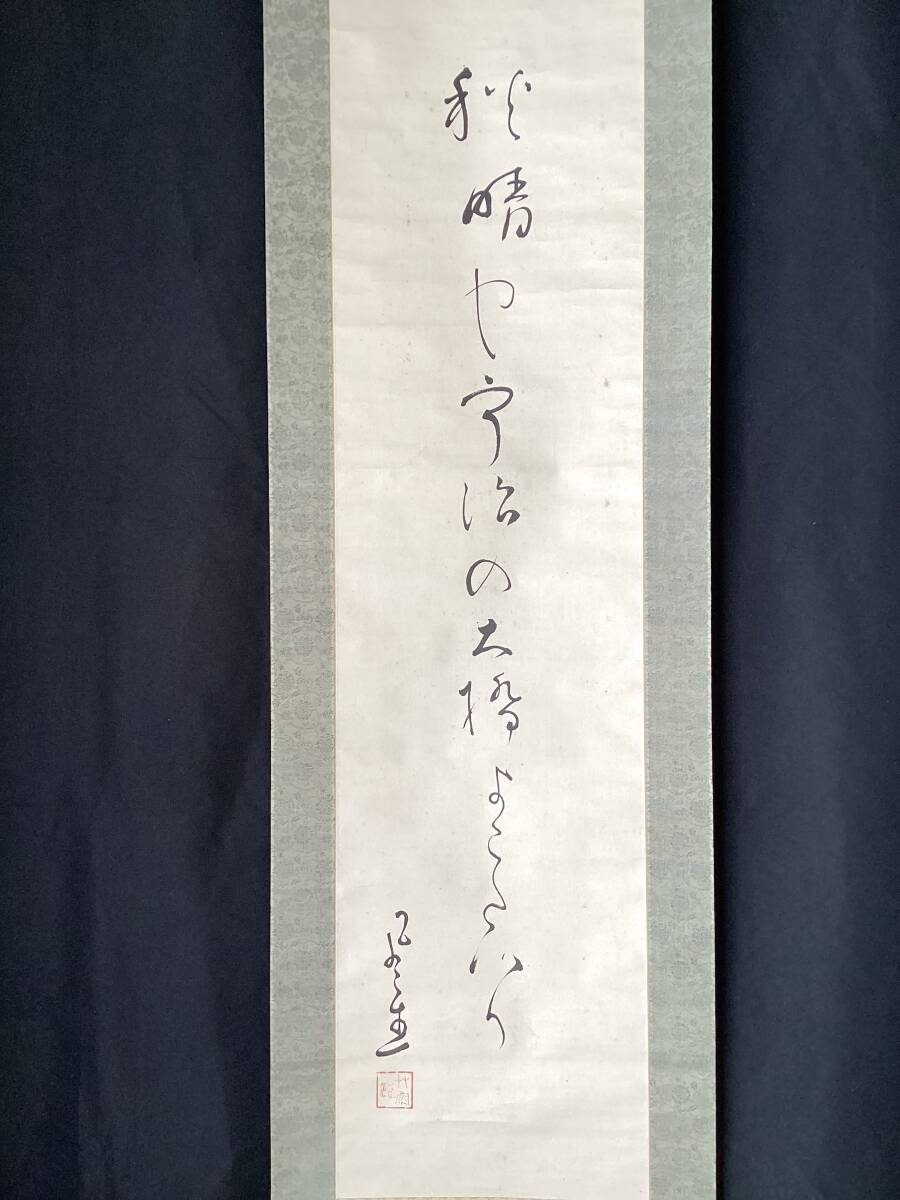 秋晴や宇治の大橋よこたはり